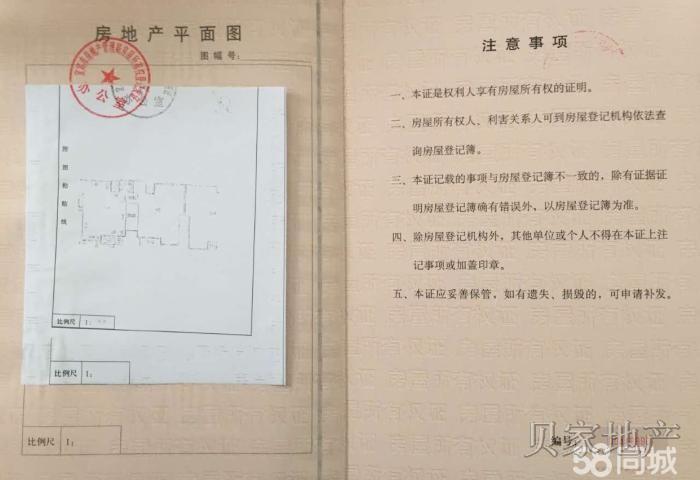 房地产平面图
图幅号：
办公室
附图粘贴线
比例尺 1：
比例尺 1：
比例尺 1：
注意事项
一、本证是权利人享有房屋所有权的证明。
二、房屋所有权人、利害关系人可到房屋登记机构依法查
询房屋登记簿。
三、本证记载的事项与房屋登记簿不一致的，除有证据证
明房屋登记簿确有错误外，以房屋登记簿为准。
四、除房屋登记机构外，其他单位或个人不得在本证上注
记事项或加盖印章。
五、本证应妥善保管，如有遗失、损毁的，可申请补发。
编号：
贝家地产
58同城